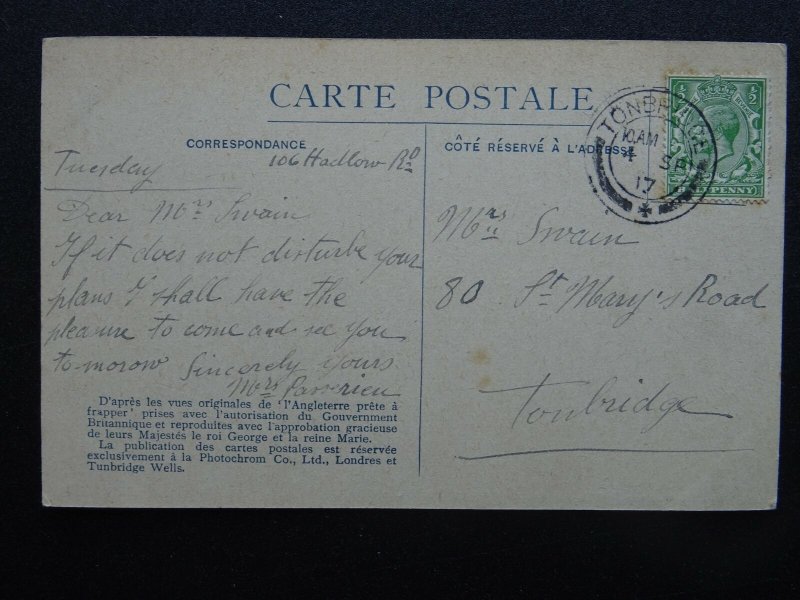 CARTE POSTALE
CORRESPONDANCE
CÔTÉ RÉSERVÉ À L'ADRESSE
TONBRIDGE
10.AM
4 SP
17
1/2
1/2
PENNY
Tuesday
106 Hadlow Rd
Dear Mrs Swain
If it does not disturbe your
plans I shall have the
pleasure to come and see you
to-morow Sincerely yours
Mrs
Mrs Swain
80 St Mary's Road
Tonbridge
D'après les vues originales de 'l'Angleterre prête à
frapper' prises avec l'autorisation du Gouvernment
Britannique et reproduites avec l'approbation gracieuse
de leurs Majestés le roi George et la reine Marie.
La publication des cartes postales est réservée
exclusivement à la Photochrom Co., Ltd., Londres et
Tunbridge Wells.